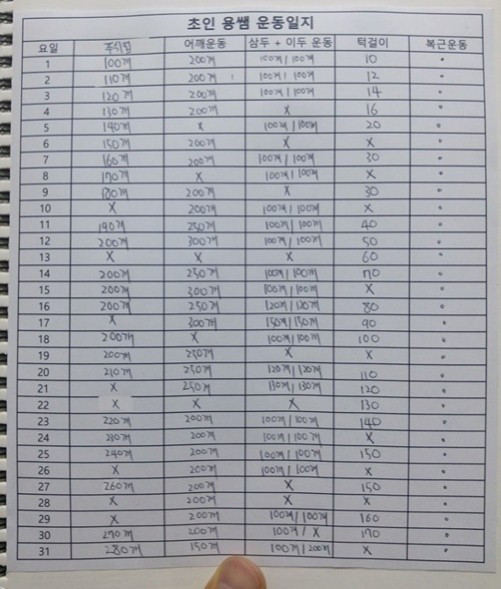 초인 용쌤 운동일지
요일 주식럽 어깨운동 삼두 + 이두 운동 턱걸이 복근운동
1 100개 200개 100개/100개 10 •
2 110개 200개 100개/100개 12 •
3 120개 200개 100개/100개 14 •
4 130개 200개 X 16 •
5 140개 X 100개/100개 20 •
6 150개 200개 X X •
7 160개 200개 100개/100개 30 •
8 170개 X 100개/100개 X •
9 180개 200개 X 30 •
10 X 200개 100개/100개 X •
11 190개 250개 100개/100개 40 •
12 200개 300개 100개/100개 50 •
13 X X X 60 •
14 200개 250개 100개/100개 70 •
15 200개 300개 100개/100개 X •
16 200개 250개 120개/120개 80 •
17 X 300개 150개/150개 90 •
18 200개 X 100개/100개 100 •
19 200개 250개 X X •
20 210개 250개 120개/120개 110 •
21 X 250개 130개/130개 120 •
22 X X X 130 •
23 220개 200개 100개/100개 140 •
24 230개 200개 100개/100개 X •
25 240개 200개 100개/100개 150 •
26 X 200개 100개/100개 X •
27 260개 200개 X 150 •
28 X 200개 X X •
29 X 200개 100개/100개 160 •
30 270개 200개 100개/X 170 •
31 280개 150개 100개/200개 X •